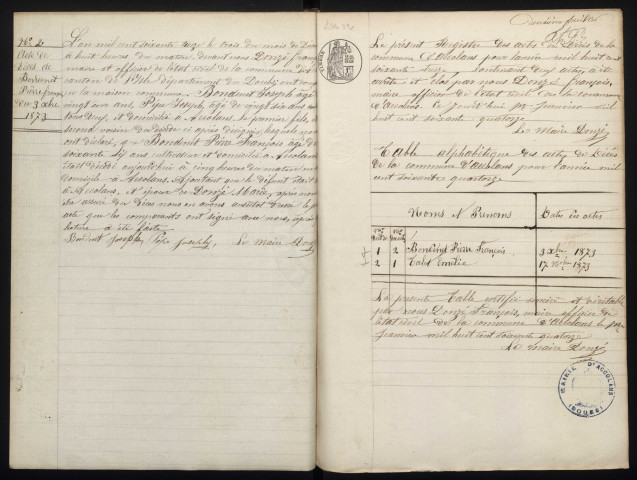 No 2
Acte de
Décès de
Bondinet
Pierre françois
du 3 xbre
1873
L'an mil soixante treize le trois du mois de
à huit heures du matin devant nous Donzé françois
maire et officier de l'état civil de la commune
canton de l'Isle département du Doubs
la maison commune Bondinet Joseph âgé
vingt ans Pépe Joseph, âgé de vingt six ans
tous deux et domicilié à Accolans, le premier fils, le
second voisin du décédé ci après désigné, lesquels nous
ont déclaré, que Bondinet Pierre François âgé de
soixante ans cultivateur et domicilié à Accolans
était décédé aujourd'hui à cinq heures du matin
domicile à Accolans. Ajoutant que le défunt était
à Accolans, et époux de Donzé Marie, après nous
être assuré du décès nous en avons aussitôt dressé le
acte que les comparants ont signé avec nous, après
lecture à été faite.
Bondinet joseph, Pépe joseph, Le maire Donzé
Deuxième feuillet
Le présent Registre des actes de Décès de la
commune d'Accolans pour l'année mil huit cent
soixante contenant deux actes, a été
arrêté et clos par nous Donzé François,
maire officier de l'état civil de la commune
d'Accolans. Ce jourd'hui 1er janvier mil
huit cent soixante quatorze
Le Maire Donzé
Table alphabétique des actes de Décès
de la commune d'Accolans pour l'année mil
huit cent soixante quatorze
Noms et Prénoms Date des actes
1 2 Bondinet Pierre François 3 xbre 1873
2 1 Talot Emélie 17 1873
La présente Table certifiée sincère et véritable
par nous Donzé François, maire officier de
l'état civil de la commune d'Accolans le 1er
janvier mil huit cent soixante quatorze
Le maire Donzé
MAIRIE D'ACCOLANS
(DOUBS)